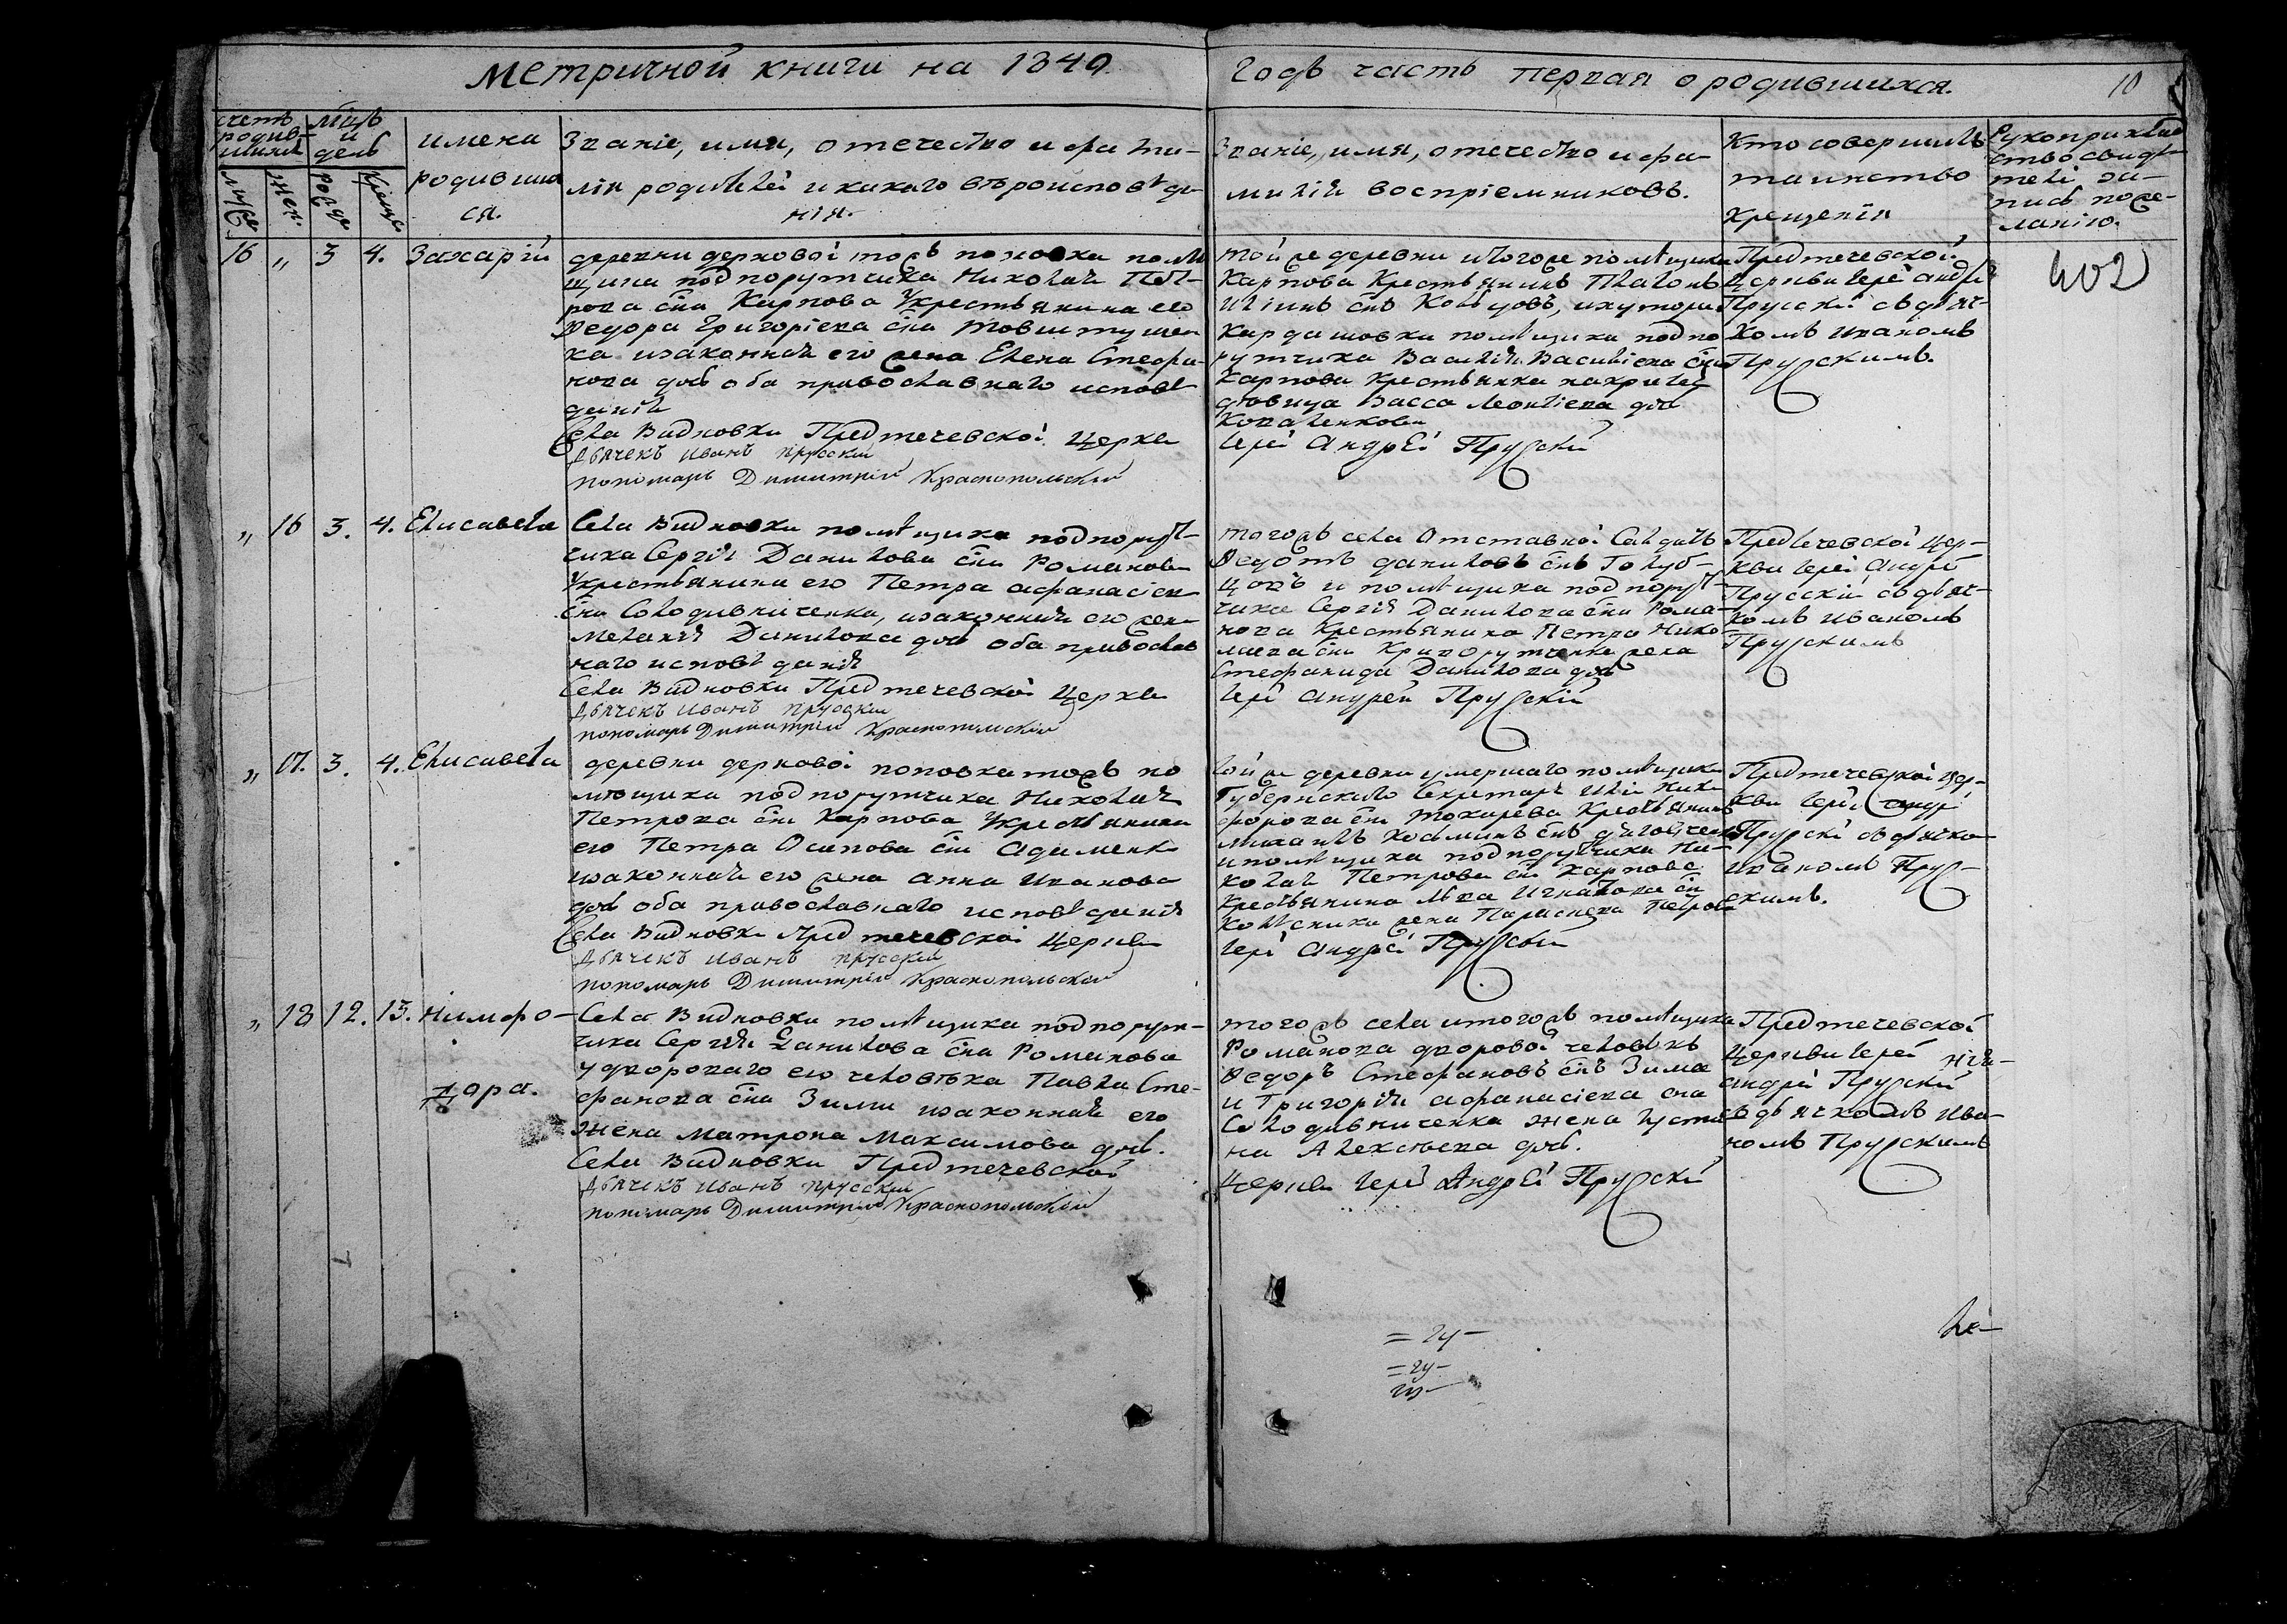 Метричной книги на 1849
годъ часть первая о родившихся.
10
счетъ родив-шихся
муж.
жен.
мцъ и день
рожд.
крещ.
имена
родивших
ся.
Званіе, имя, отечество и фами-
лія родителей и какаго вѣроисповѣда-
нія.
Званіе, имя, отечество и фа-
милія воспріемниковъ.
Кто совершилъ
таинство
крещенія
Рукоприклад
ство свидѣ-
телей за-
писи по же-
ланію.
16 „ 3 4. Захарій
деревни дерновой тожъ поповки помѣ
щика подпорутчика Николая Пет-
рова сна Карпова Укрестьянина его
Федора Григоріева сна Товштушен
ка изаконная его жена Елена Стефа
нова дочь оба православнаго исповѣ
данія
Села Видновки Предтечевской Церкви
дьячекъ Иванъ Прусскій
пономарь Димитрій Краснопольскій
той же деревни итогоже помѣщика
Карпова Крестьянинъ Платонъ
снъ ихутора
Кардашовки помѣщика подпо
рутчика Василія Василіева сна
Карпова Крестьянка
вдовица Васса Леонтіева дочь
Коваленкова
Іерей Андрей Прускій
Предтечевской
Церкви Іерей Андрей
Прускій съ дьяч-
комъ Иваномъ
Прускимъ.
402
„ 16 3. 4. Елисавета
Села Видновки помѣщика подпорут-
чика Сергія Данилова сна Романова
Укрестьянина его Петра афанасіев
сна Солодивниченка, изаконная его жен
Меланія Данилова дочь оба православ
наго исповѣданія
Села Видновки Предтечевской Церкви
дьячекъ Иванъ Прусскій
пономарь Димитрій Краснопольскій
тогожъ села Отставной Салдатъ
Федотъ даниловъ снъ Голуб-
цовъ и помѣщика подпорут
чика Сергія Данилова сна Рома-
нова Крестьянина Петра Нико
лаева сна Криворутченка жена
Стефанида Данилова дочь
Іерей Андрей Прускій
Предтечевской Цер-
кви Іерей Андрей
Прусскій съ дьяч-
комъ Иваномъ
Прускимъ
„ 17. 3. 4. Елисавета
деревни дерновой поповка тожъ по
мѣщика подпорутчика Николая
Петрова сна Карпова Укрестьянина
его Петра Осипова сна Адаменка
изаконная его жена анна Иванова
дочь оба православнаго исповѣданія
Села Видновки Предтечевской Церкви
дьячекъ Иванъ Прусскій
пономарь Димитрій Краснопольскій
той же деревни умершаго помѣщика
Губернскаго Секретаря Иліи Ники
форова сна Токарева Крестьянинъ
снъ
ипомѣщика подпорутчика Ни-
колая Петрова сна Карпова
Крестьянина Льва Игнатова сна
жена Параскева Петрова
Іерей Андрей Прускій
Предтечевской Цер-
кви Іерей Андрей
Прускій съ дьячко
Иваномъ Прус-
скимъ.
„ 18 12. 13. Нимфо-
дора.
Села Видновки помѣщика подпорут-
чика Сергія Данилова сна Романова
удвороваго его человѣка Павла Сте-
фанова сна Зимы изаконная его
жена Матрона Максимова дочь.
Села Видновки Предтечевской
дьячекъ Иванъ Прусскій
пономарь Димитрій Краснопольскій
тогожъ села итогожъ помѣщика
Романова дворовой человѣкъ
Федоръ Стефановъ снъ Зима
и Григорія афанасіева сна
Солодивниченка жена Іусти
на Алексѣева дочь.
Церкви Іерей Андрей Прускій
Предтечевской
Церкви Іерей
андрей Прускій
съ дьячкомъ Ива-
номъ Прускимъ